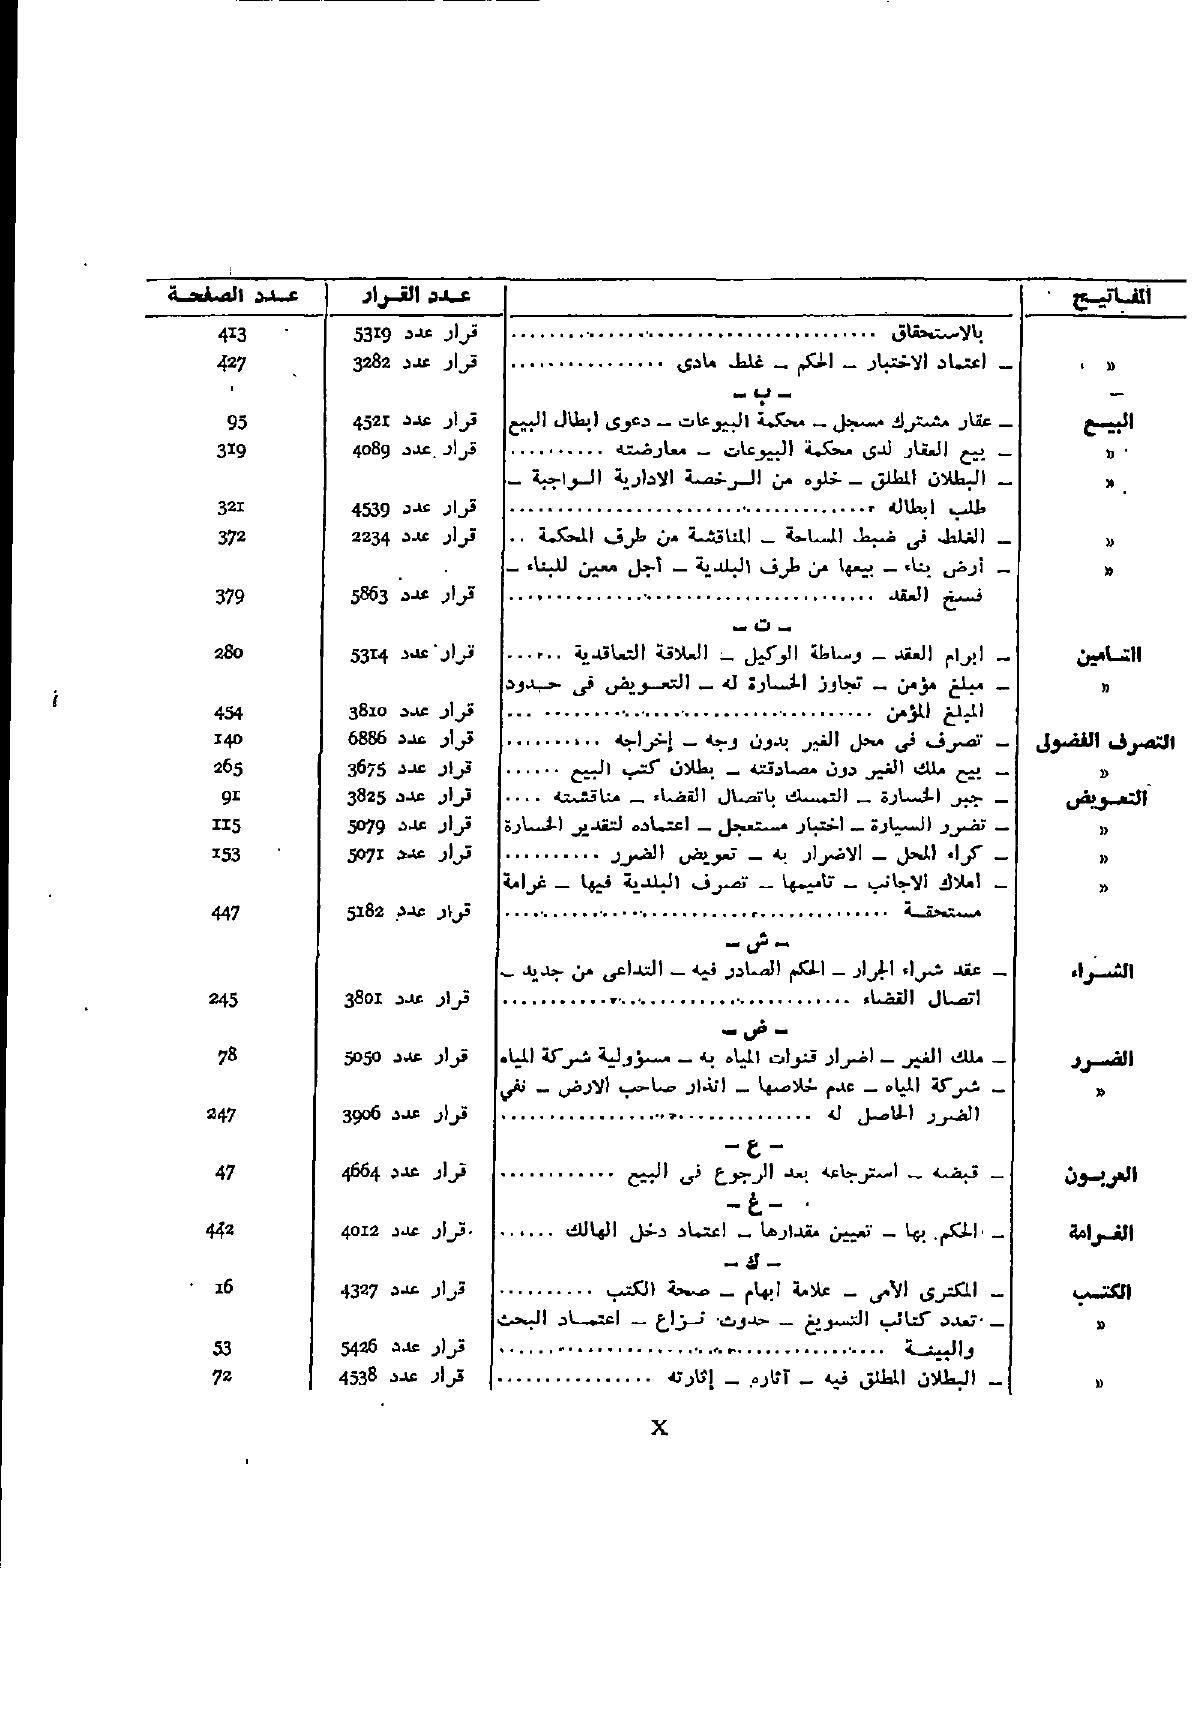 المفاتيح عدد القرار عدد الصفحة
بالاستحقاق ........ قرار عدد 5319 413
» – اعتماد الاختبار – الحكم – غلط مادى ........ قرار عدد 3282 427
– ب –
البيع – عقار مشترك مسجل – محكمة البيوعات – دعوى ابطال البيع قرار عدد 4521 95
» – بيع العقار لدى محكمة البيوعات – معارضته ........ قرار عدد 4089 319
» – البطلان المطلق – خلوه من الرخصة الادارية الواجبة –
طلب ابطاله ........ قرار عدد 4539 321
» – الغلط فى ضبط المساحة – المناقشة من طرف المحكمة .. قرار عدد 2234 372
» – أرض بناء – بيعها من طرف البلدية – أجل معين للبناء –
فسخ العقد ........ قرار عدد 5863 379
– ت –
التامين – ابرام العقد – وساطة الوكيل – العلاقة التعاقدية ...... قرار عدد 5314 280
» – مبلغ مؤمن – تجاوز الخسارة له – التعويض فى حدود
المبلغ المؤمن ........ قرار عدد 3810 454
التصرف الفضولى – تصرف فى محل الغير بدون وجه – إخراجه ........ قرار عدد 6886 140
» – بيع ملك الغير دون مصادقته – بطلان كتب البيع ...... قرار عدد 3675 265
التعويض – جبر الخسارة – التمسك باتصال القضاء – مناقشته .... قرار عدد 3825 91
» – تضرر السيارة – اختبار مستعجل – اعتماده لتقدير الخسارة قرار عدد 5079 115
» – كراء المحل – الاضرار به – تعويض الضرر ........ قرار عدد 5071 153
» – أملاك الاجانب – تاميمها – تصرف البلدية فيها – غرامة
مستحقة ........ قرار عدد 5182 447
– ش –
الشراء – عقد شراء الجرار – الحكم الصادر فيه – التداعى من جديد –
اتصال القضاء ........ قرار عدد 3801 245
– ض –
الضرر – ملك الغير – اضرار قنوات المياه به – مسؤولية شركة المياه قرار عدد 5050 78
» – شركة المياه – عدم خلاصها – انذار صاحب الارض – نفي
الضرر الحاصل له ........ قرار عدد 3906 247
– ع –
العربون – قبضه – استرجاعه بعد الرجوع فى البيع ........ قرار عدد 4664 47
– غ –
الغرامة – الحكم بها – تعيين مقدارها – اعتماد دخل الهالك ...... قرار عدد 4012 442
– ك –
الكتب – المكترى الأمى – علامة ابهام – صحة الكتب ........ قرار عدد 4327 16
» – تعدد كتائب التسويغ – حدوث نزاع – اعتماد البحث
والبينة ........ قرار عدد 5426 53
» – البطلان المطلق فيه – آثاره – إثارته ........ قرار عدد 4538 72
X